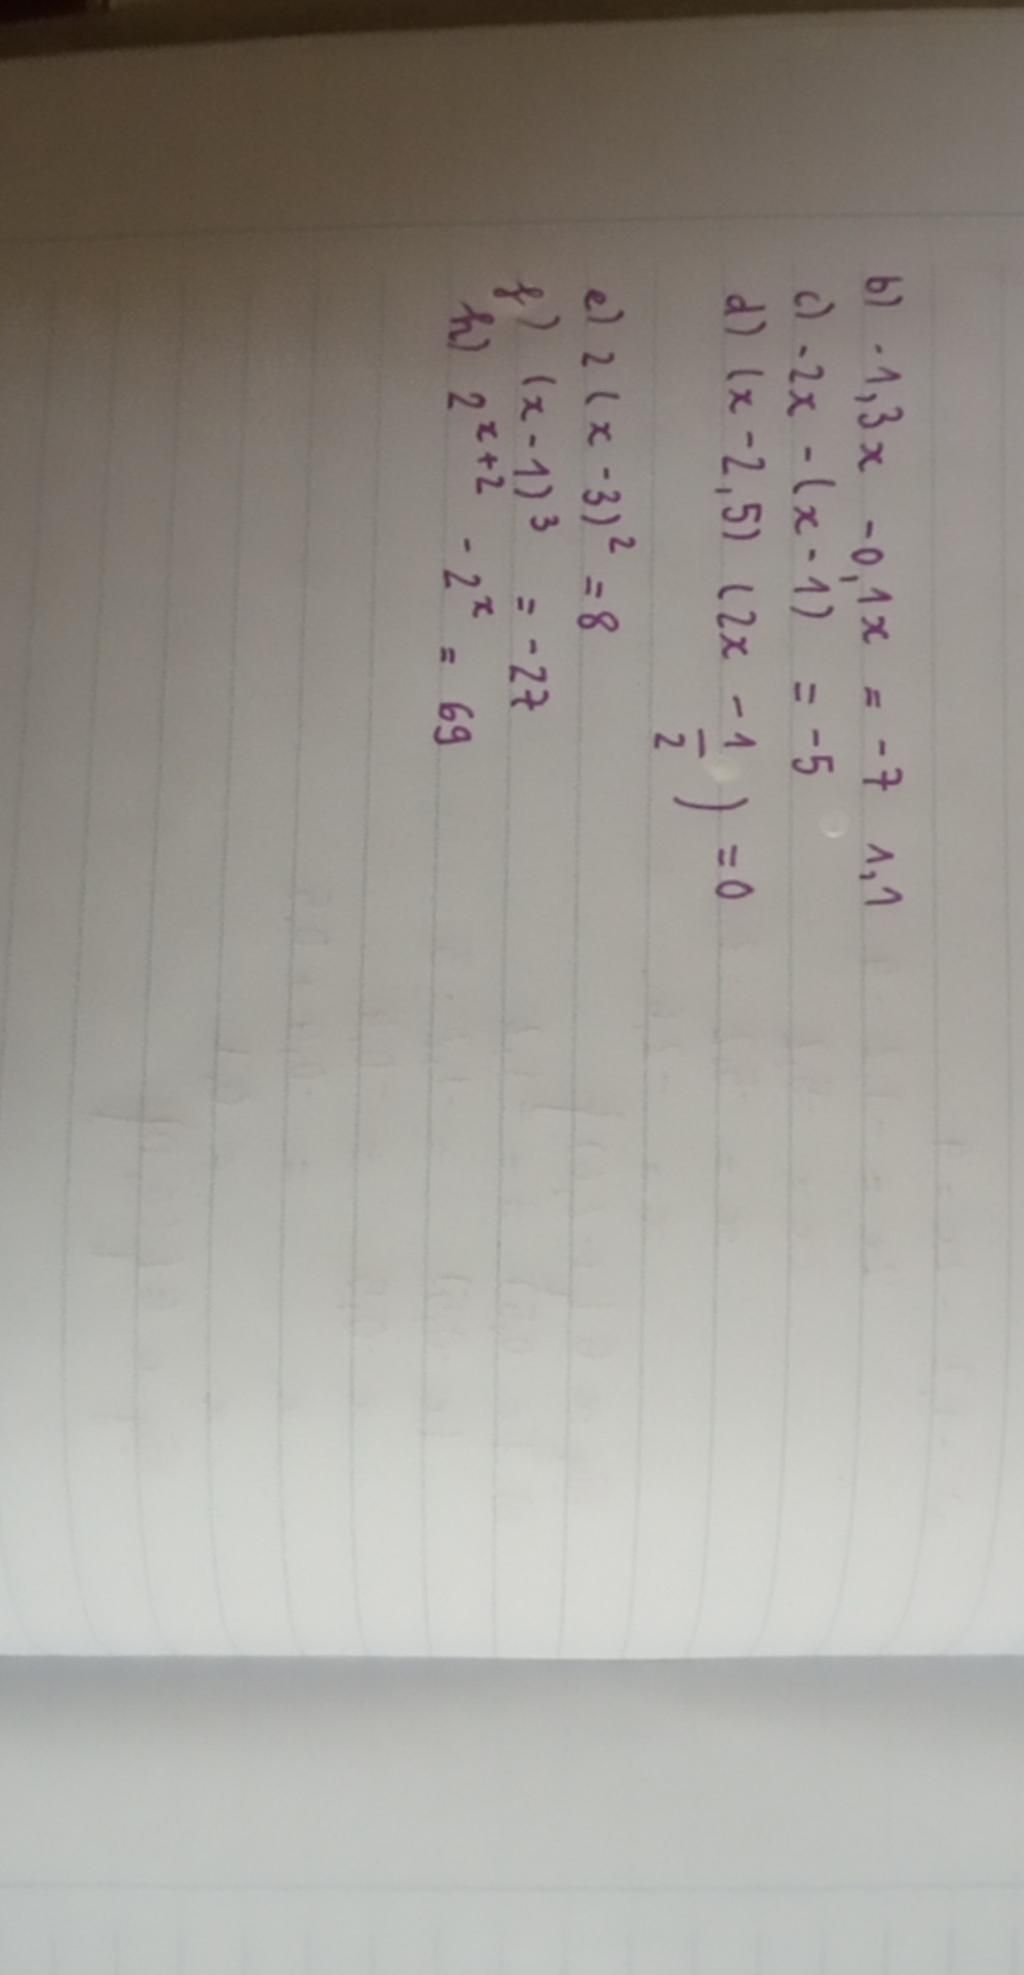 b) -1,3x - 0,1x = -7 1,1
c) -2x - (x - 1) = -5
d) (x - 2,5) (2x - 1/2) = 0
e) 2 (x - 3)² = 8
f) (x - 1)³ = -27
h) 2ˣ⁺² - 2ˣ = 69